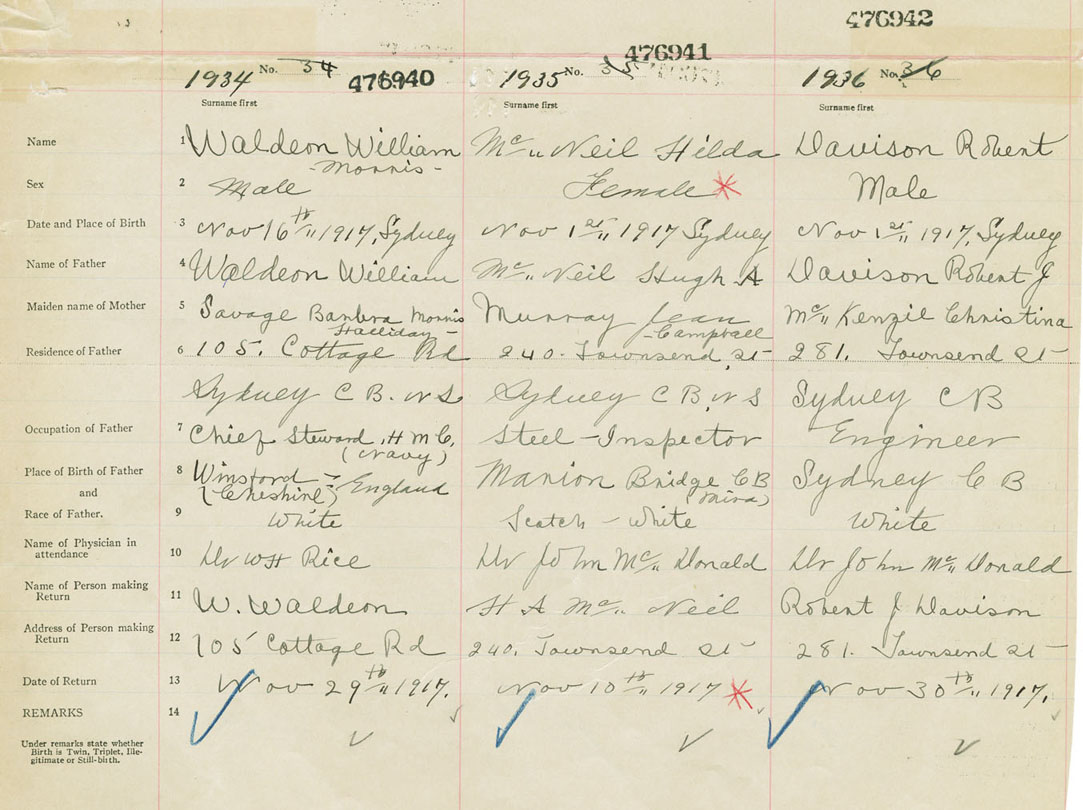 476942
476941
1934 No. 34 476940 1935 No. 35 1936 No. 36
Surname first Surname first Surname first
Name 1 Waldeon William Mc„ Neil Hilda Davison Robert
- Morris -
Sex 2 Male Female Male
Date and Place of Birth 3 Nov 16th„ 1917, Sydney Nov 1st„ 1917 Sydney Nov 1st„ 1917, Sydney
Name of Father 4 Waldeon William Mc„ Neil Hugh A Davison Robert J
Maiden name of Mother 5 Savage Barbra Morris Murray Jean Mc„ Kenzie Christina
Halliday - - Campbell
Residence of Father 6 105. Cottage Rd 240. Townsend St - 281. Townsend St -
Sydney C B. N S Sydney C B, N S Sydney C B
Occupation of Father 7 Chief Steward, H M C, Steel - Inspector Engineer
(Navy)
Place of Birth of Father 8 Winsford - England Marion Bridge C B Sydney C B
and (Cheshire) (Mira)
Race of Father. 9 White Scotch - White White
Name of Physician in
attendance 10 Dr W H Rice Dr John Mc„ Donald Dr John Mc„ Donald
Name of Person making
Return 11 W. Waldeon H A Mc„ Neil Robert J Davison
Address of Person making
Return 12 105 Cottage Rd 240. Townsend St - 281. Townsend St -
Date of Return 13 Nov 29th„ 1917. Nov 10th„ 1917 Nov 30th„ 1917.
REMARKS 14
Under remarks state whether
Birth is Twin, Triplet, Ille-
gitimate or Still-birth.